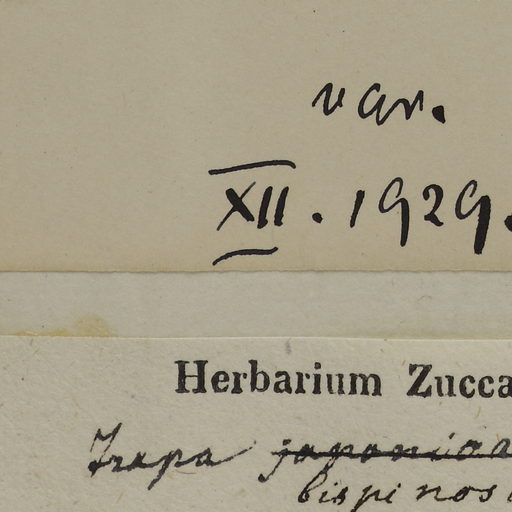 var.
XII. 1929.
Herbarium Zucca
Trapa japonica
bispinosa